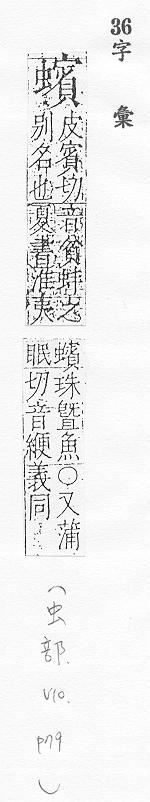 36字彙
蠙
皮賓切音貧蚌之
別名也夏書淮夷
蠙珠曁魚○又蒲
眠切音緶義同
(虫部. V10. P79)